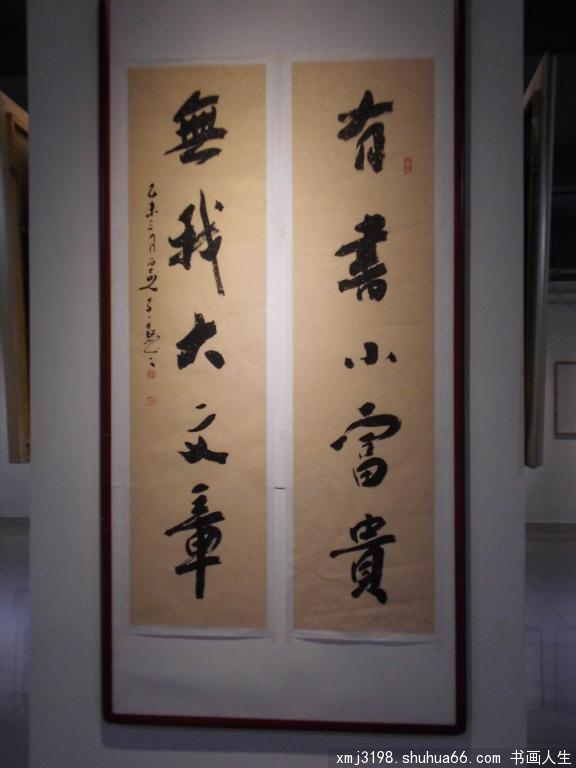 有書小富貴
無我大文章
乙未三月
xmj3198.shuhua66.com 书画人生